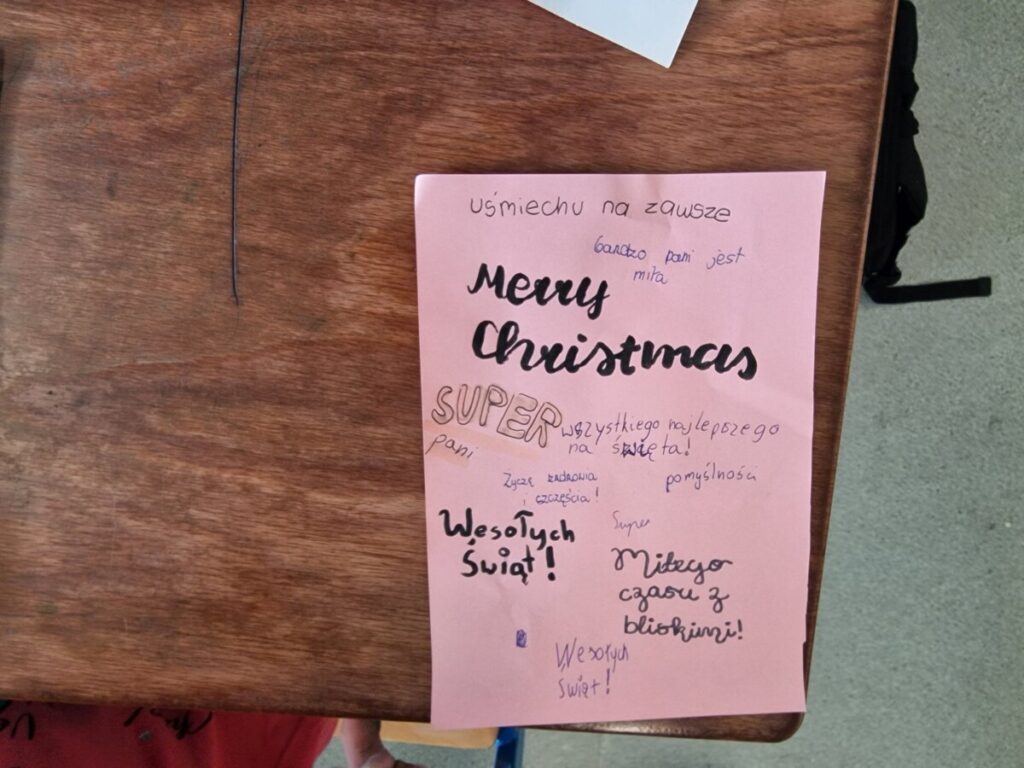 uśmiechu na zawsze
bardzo pani jest
miła
Merry
Christmas
SUPER
pani
wszystkiego najlepszego
na święta!
Życzę zdrowia
i szczęścia!
pomyślności
Wesołych
Świąt!
Super
Miłego
czasu z
bliskimi!
Wesołych
świąt!